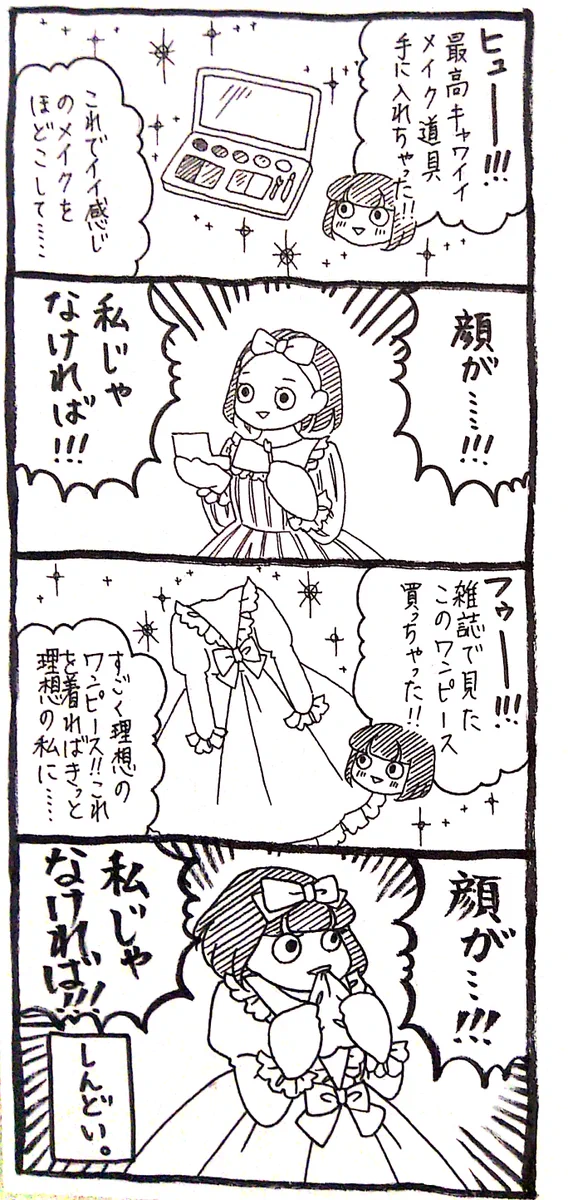 ヒューー!!!
最高キャワイイ
メイク道具
手に入れちゃった!!
これでイイ感じ
のメイクを
ほどこして……
顔が……!!!
私じゃ
なければ!!!
フゥーー!!!
雑誌で見た
このワンピース
買っちゃった!!
すごく理想の
ワンピース!!これ
を着ればきっと
理想の私に……
顔が…!!!
私じゃ
なければ!!!
しんどい。